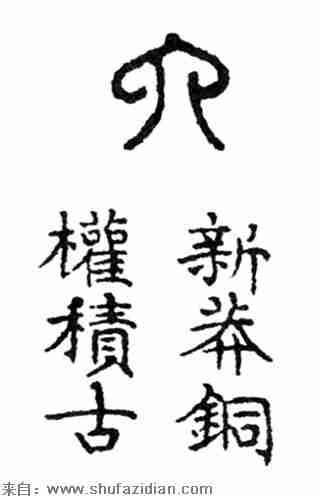 新莽銅
權積古
来自：www.shufazidian.com